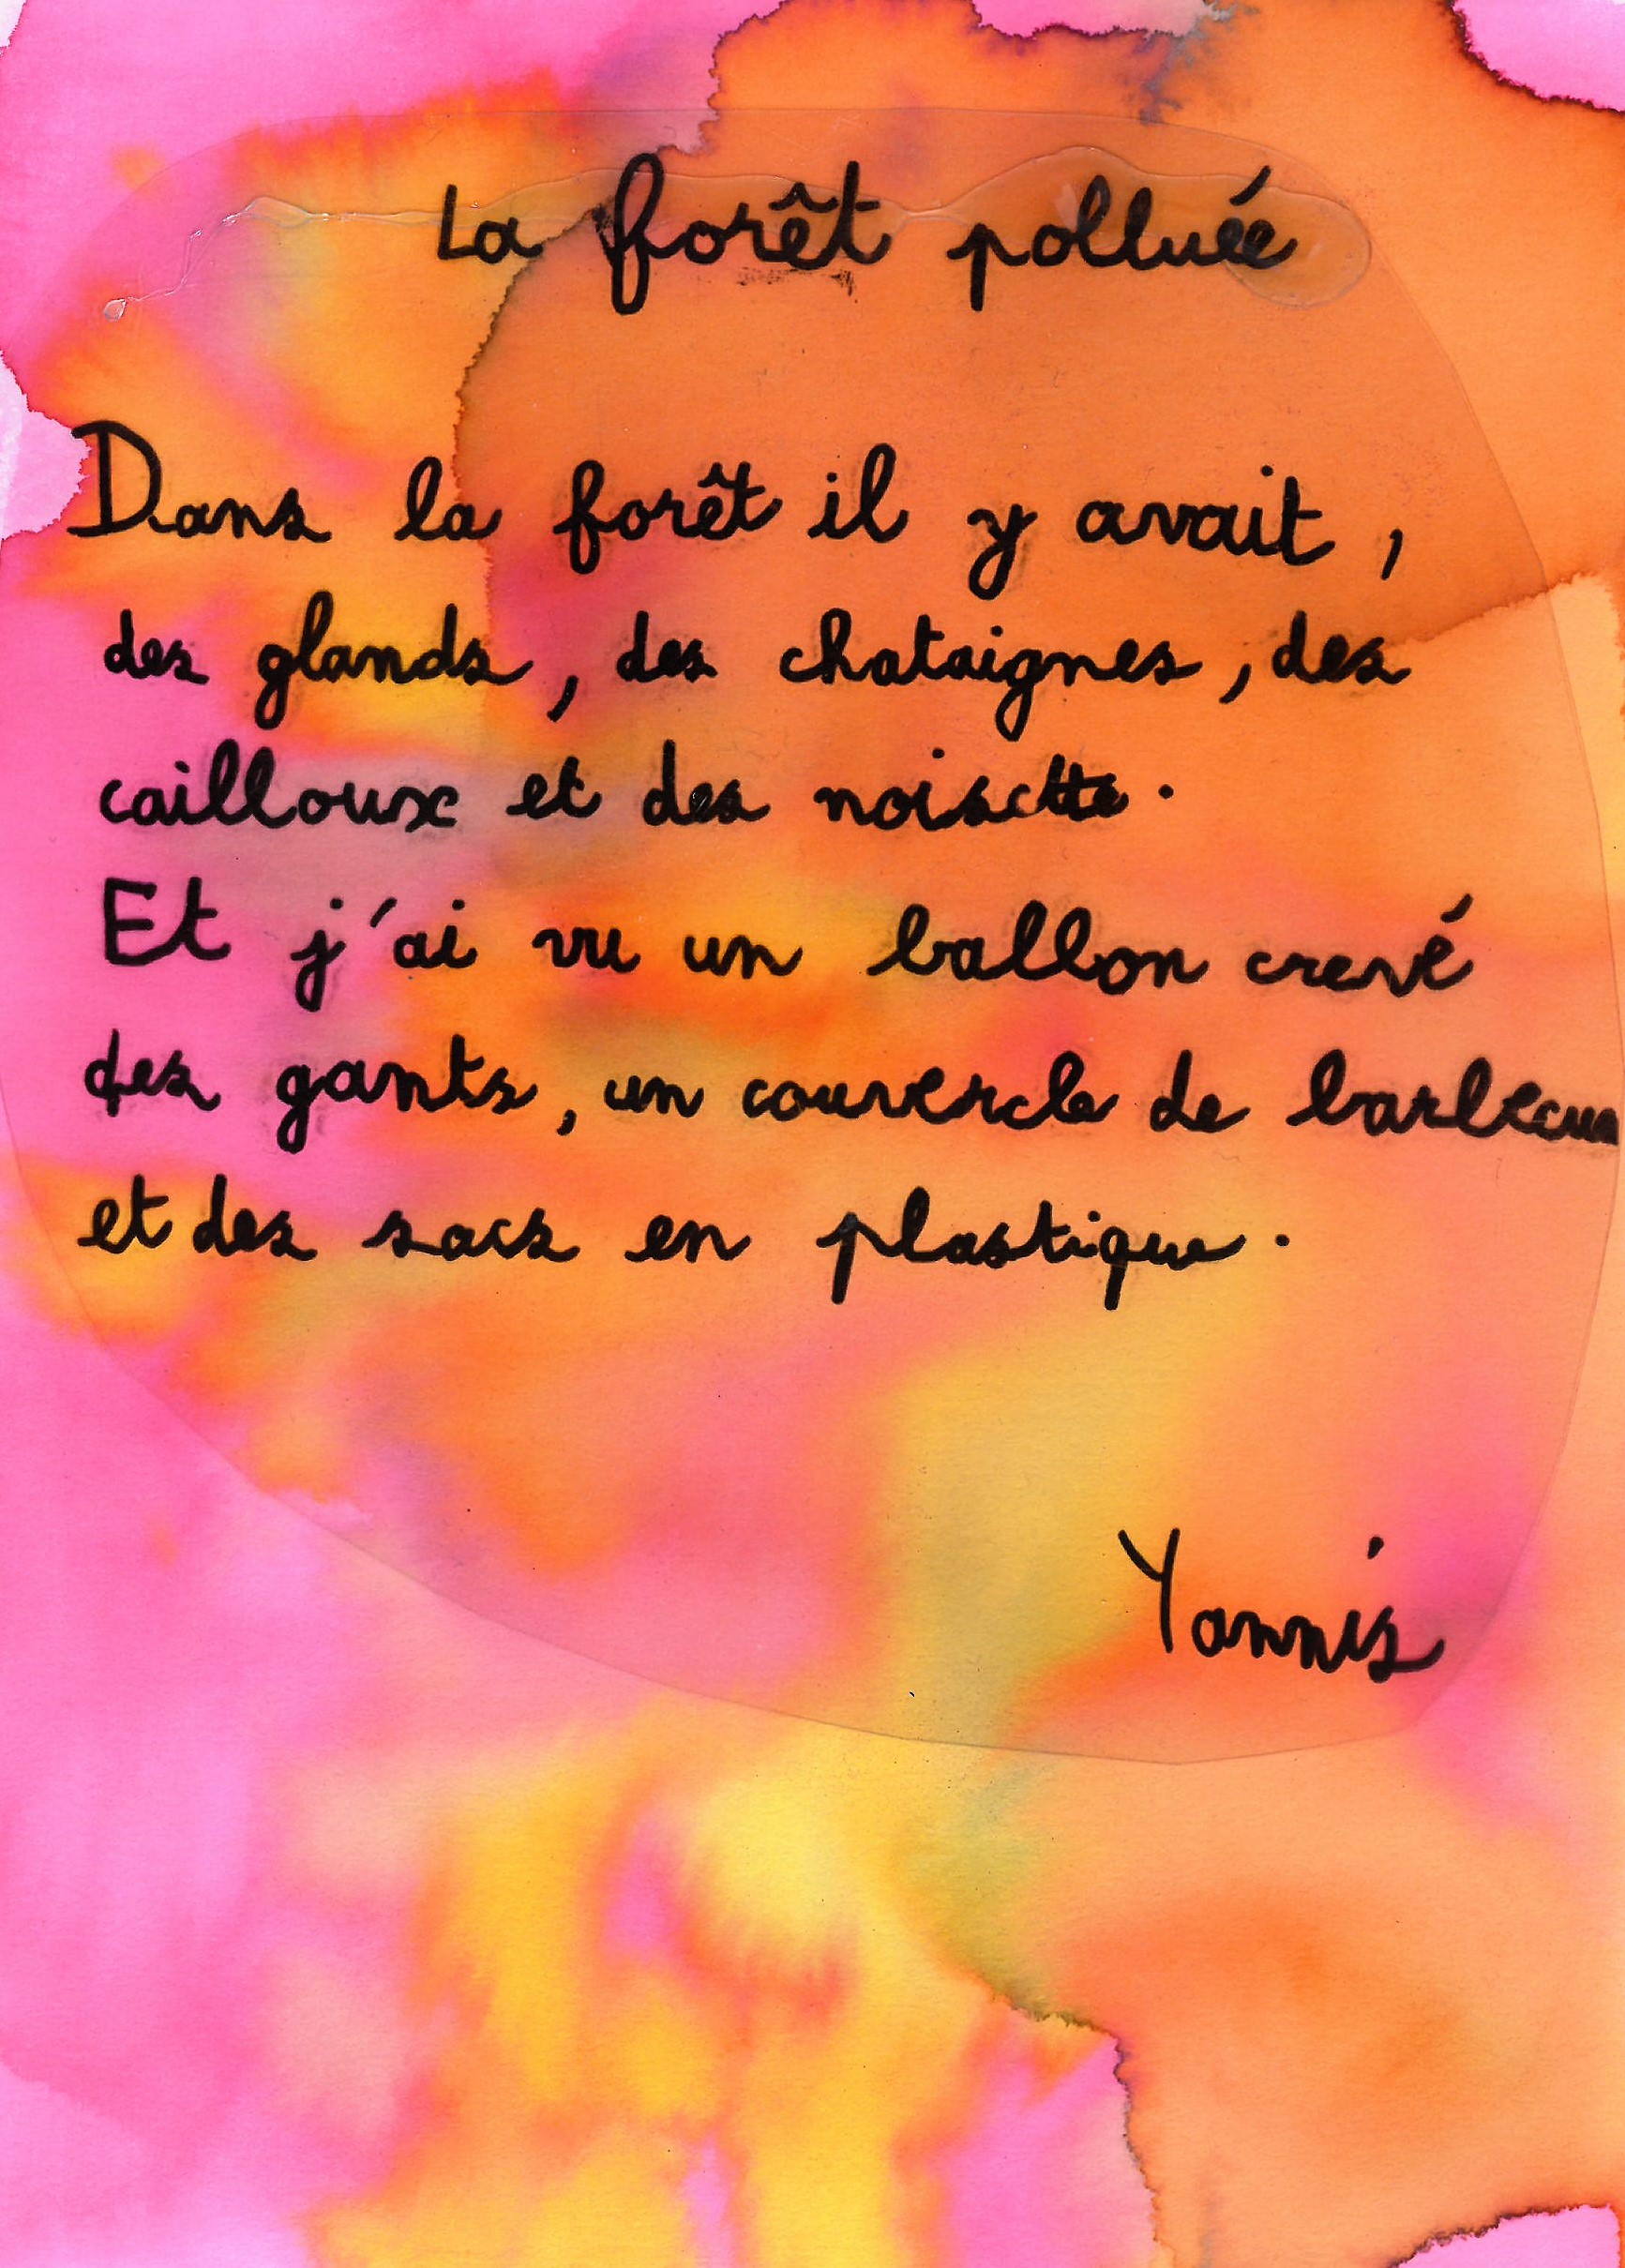 La forêt polluée
Dans la forêt il y avait,
des glands, des chataignes, des
cailloux et des noisette.
Et j'ai vu un ballon crevé
des gants, un couvercle de barbecue
et des sacs en plastique.
Yannis